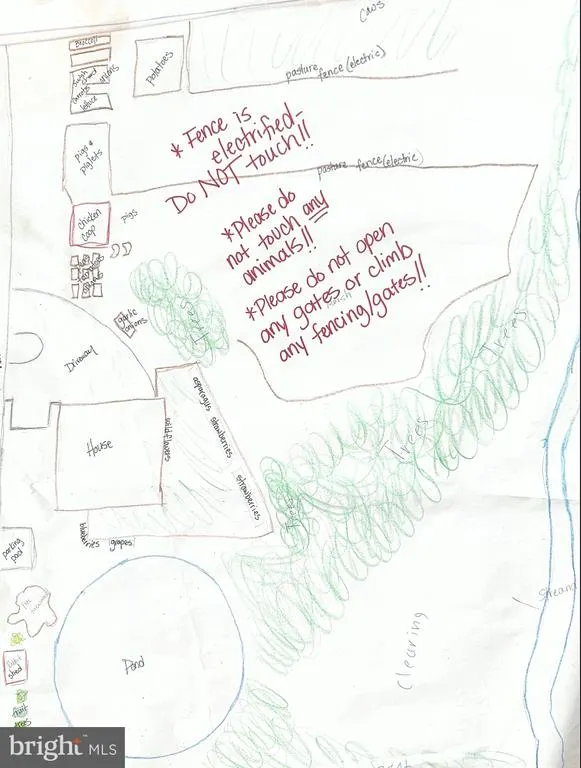 Cows
Broccoli
onions
Swiss chard
carrots
lettuce
potatoes
pasture fence (electric)
pigs &
piglets
* Fence is
electrified-
Do NOT touch!!
pasture fence (electric)
chicken
coop
pigs
*Please do
not touch any
animals!!
*Please do not open
any gates or climb
any fencing/gates!!
garlic
onions
Trees
Trees
Driveway
House
wildflowers
asparagus
strawberries
strawberries
Trees
Trees
berries
grapes
parking
pad
Pond
shed
fruit
trees
Clearing
Stream
bright MLS